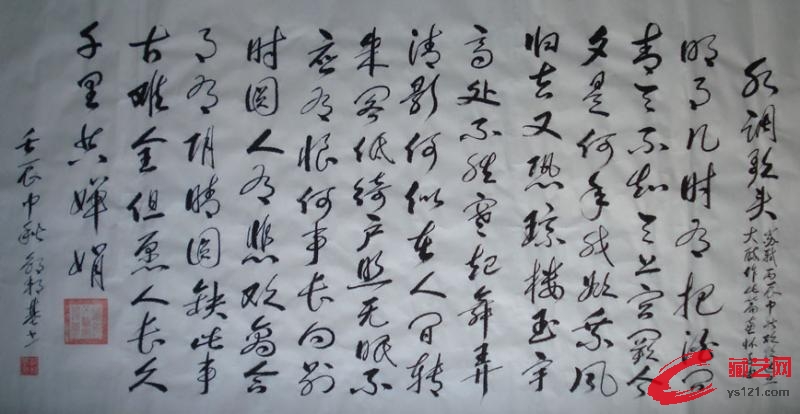 水调歌头
苏轼丙辰中秋
大醉作此篇兼怀子由
明月几时有把酒问
青天不知天上宫阙今
夕是何年我欲乘风
归去又恐琼楼玉宇
高处不胜寒起舞弄
清影何似在人间转
朱阁低绮户照无眠不
应有恨何事长向别
时圆人有悲欢离合
月有阴晴圆缺此事
古难全但愿人长久
千里共婵娟
壬辰中秋
藏艺网
ys121.com